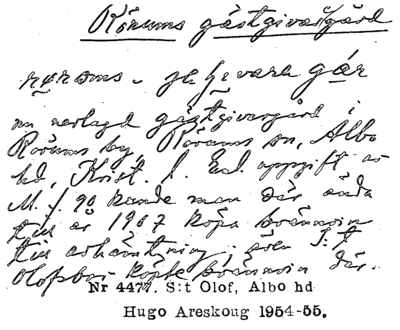 Rörums gästgivaregård
nu nedlagd gästgivaregård i
Rörums by, Rörums sn, Albo
hd, Krist. l. Enl. uppgift av
M. f. 90 kunde man där ända
till år 1907 köpa brännvin
till avhämtning; från S:t
Olofsbor köpte brännvin där.
Nr 4477. S:t Olof, Albo hd
Hugo Areskoug 1954-55.